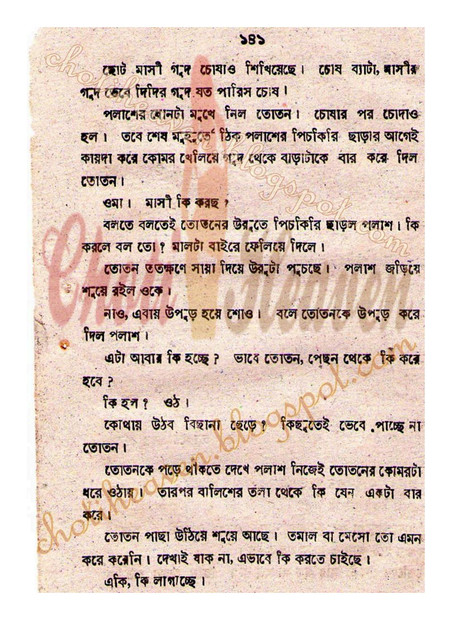 ১৪১
ছোট মাসী গুদ চোষাও শিখিয়েছে। চোষ ব্যাটা, মাসীর
গুদ ভেবে দিদির গুদ যত পারিস চোষ।
পলাশের ধোনটা মুখে নিল তোতন। চোষার পর চোদাও
হল। তবে শেষ মুহূর্তে ঠিক পলাশের পিচকিরি ছাড়ার আগেই
কায়দা করে কোমর খেলিয়ে গুদ থেকে বাড়াটাকে বার করে দিল
তোতন।
ওমা। মাসী কি করছ?
বলতে বলতেই তোতনের উরুতে পিচকিরি ছাড়ল পলাশ। কি
করলে বল তো? মালটা বাইরে ফেলিয়ে দিলে।
তোতন ততক্ষণে সায়া দিয়ে উরুটা পুছছে। পলাশ জড়িয়ে
শুয়ে রইল ওকে।
নাও, এবার উপুড় হয়ে শোও। বলে তোতনকে উপুড় করে
দিল পলাশ।
এটা আবার কি হচ্ছে? ভাবে তোতন, পেছন থেকে কি করে
হবে?
কি হল? ওঠ।
কোথায় উঠব বিছানা ছেড়ে? কিছুতেই ভেবে পাচ্ছে না
তোতন।
তোতনকে পড়ে থাকতে দেখে পলাশ নিজেই তোতনের কোমরটা
ধরে ওঠায়। তারপর বালিশের তলা থেকে কি যেন একটা বার
করে।
তোতন পাছা উঠিয়ে শুয়ে আছে। তমাল বা মেসো তো এমন
করে করেনি। দেখাই যাক না, এভাবে কি করতে চাইছে।
একি, কি লাগাচ্ছে।
choti heaven
chotiheaven.blogspot.com
chotiheaven.blogspot.com